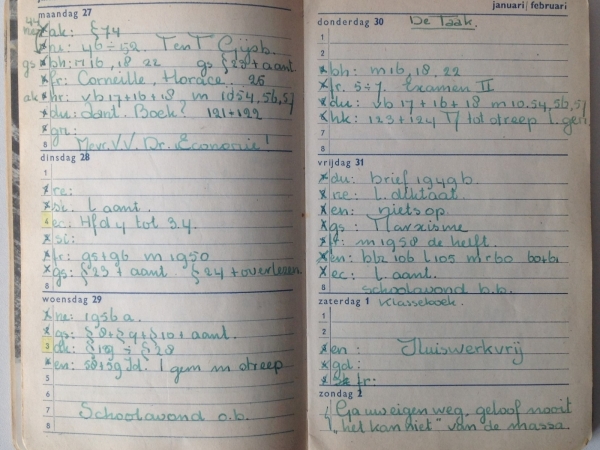 maandag 27
ak: § 74
wi: 46 ÷ 52. Tent Gijsb.
gs bh: m 16, 18, 22 gs § 23 + aant.
fr: Corneille, Horace. 26
ak hr: vb 17 + 16 + 18 m 10 54, 56, 57
du: aant. Boek? 121 + 122
gn:
8 Mevr. V.V. Dr. Economie!
dinsdag 28
1
re:
L aant.
4 ec: Hfd 4 tot 3.4.
sc:
fr: gs + gb m 1950
gs: § 23 + aant § 24 + overlezen.
8
woensdag 29
ne: 1956 a.
gs: § 8 + § 9 + § 10 + aant.
3 ak: § 19 ÷ § 28
en: 58 + 59 Id. 1 gem m streep
5
6
7 Schoolavond o.b.
8
januari/februari
donderdag 30 De Taak.
1
2
bh: m 16, 18, 22
fr. 5 ÷ 7. Examen II
du: vb 17 + 16 + 18 m 10. 54, 56, 57
hk: 123 + 124 T/ tot streep 1. gem
8
vrijdag 31
du: brief 1949b.
ne: L. diktaat.
en: niets op
gs: Marxisme
fr: m 1958 de helft.
en: bbz 106 L 105 m r 60 bo + b1
ec: L. aant.
8 Schoolavond b.b.
zaterdag 1 Klasseboek.
1
2
3
en: Huiswerkvrij
gd:
fr:
zondag 2
Ga uw eigen weg, geloof nooit
"het kan niet" van de massa.